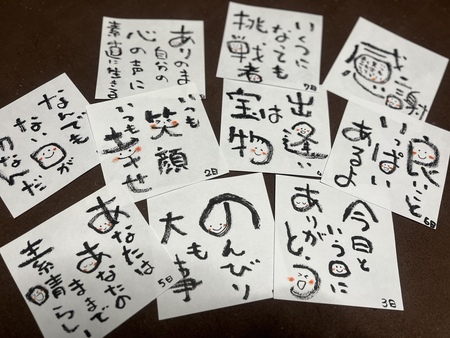 ありのま
自分の
心の声に
素直に生きる
いくつに
なっても
挑戦者
7日
感謝
なんでも
ない日が
なんだ
いつも
笑顔
いつも
幸せ
2日
出逢い
は
宝物
良いこと
いっぱい
あるよ
6日
あなたは
あなたの
ままで
素晴らしい
のんびり
も
大事
5日
今日と
いう日に
ありがとう
3日